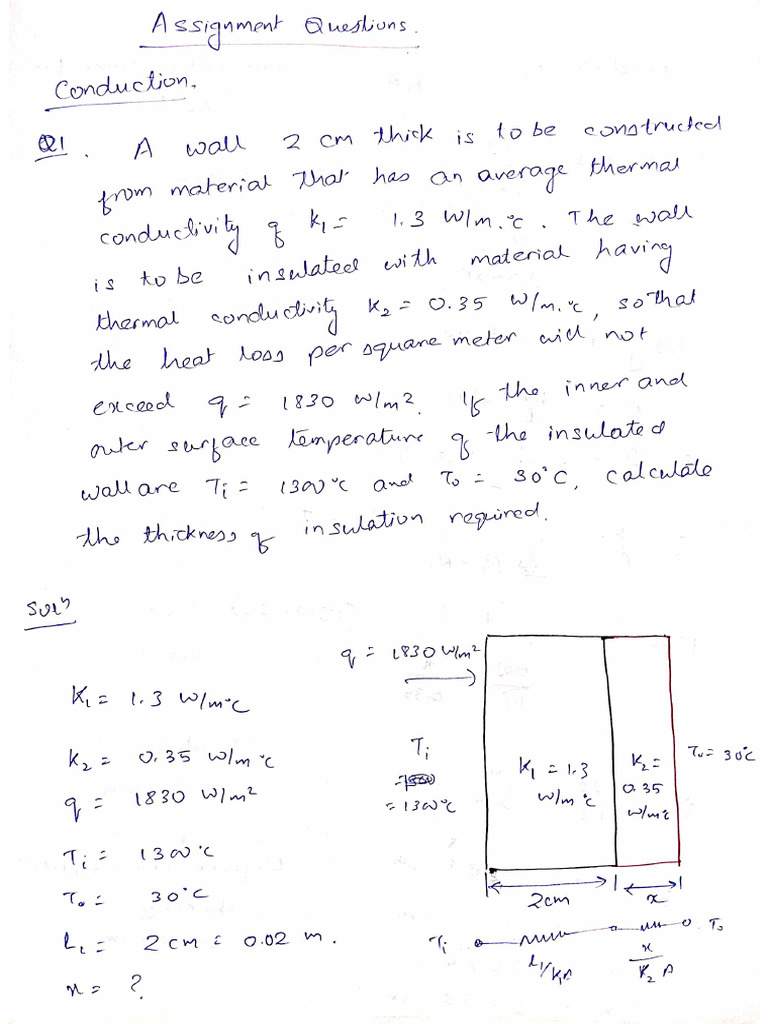 Assignment Questions.
Conduction.
Q1. A wall 2 cm thick is to be constructed
from material that has an average thermal
conductivity of K₁ = 1.3 W/m.°C. The wall
is to be insulated with material having
thermal conductivity K₂ = 0.35 W/m.°C, so that
the heat loss per square meter will not
exceed q = 1830 W/m². If the inner and
outer surface temperature of the insulated
wall are Ti = 1300°C and To = 30°C, calculate
the thickness of insulation required.
Solⁿ
q = 1830 W/m²
K₁ = 1.3 W/m°C
K₂ = 0.35 W/m°C
q = 1830 W/m²
Ti = 1300°C
To = 30°C
L₁ = 2 cm = 0.02 m.
x = ?
Ti
= 1300°C
K₁ = 1.3
W/m°C
K₂ =
0.35
W/m°C
To = 30°C
2cm
x
Ti
To
L₁/K₁A
x
K₂A